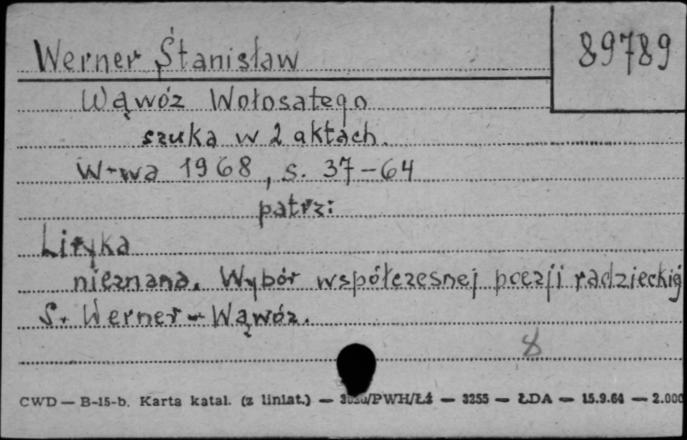 Werner Stanisław
89789
Wąwóz Wołosatego
szuka w 2 aktach.
W-wa 1968, s. 37-64
patrz:
Liryka
nieznana. Wybór współczesnej poezji radzieckiej
S. Werner - Wąwóz.
8
CWD — B-15-b. Karta katal. (z liniat.) — /PWH/Łź — 3255 — ŁDA — 15.9.64 — 2.000